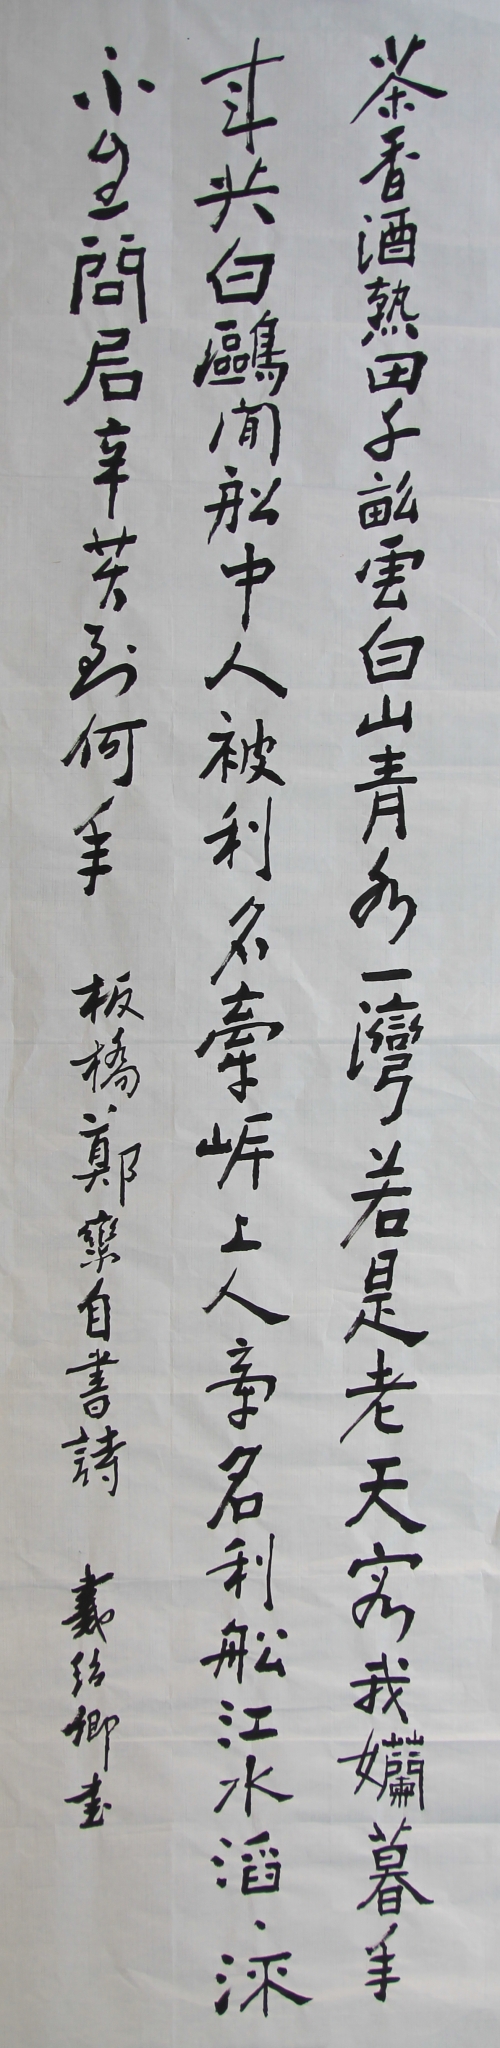 茶香酒熟田千畝雲白山青水一灣若是老天容我嬾暮年
來共白鷗閒舩中人被利名牽岸上人牽名利舩江水滔、流
不盡問君辛苦到何年 板橋鄭燮自書詩 戴紹卿書